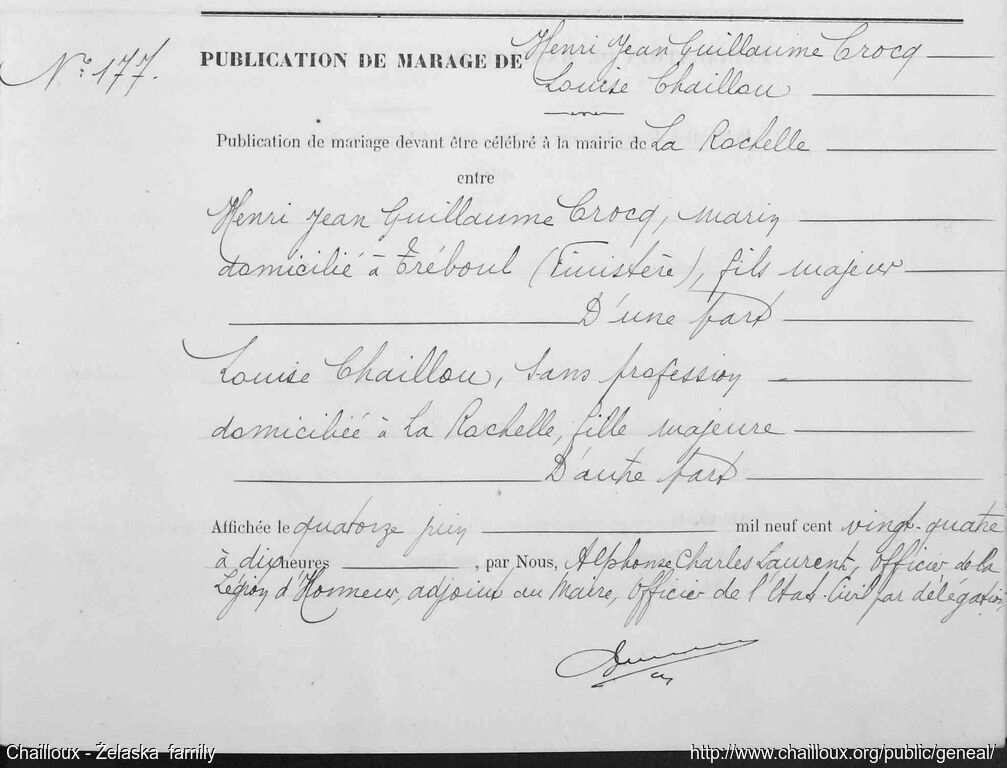 N° 177.
PUBLICATION DE MARAGE DE Henri Jean Guillaume Crocq
Louise Chaillou
Publication de mariage devant être célébré à la mairie de La Rochelle
entre
Henri Jean Guillaume Crocq, marin
domicilié à Tréboul (Finistère), fils majeur
D'une part
Louise Chaillou, sans profession
domiciliée à La Rochelle, fille majeure
D'autre part
Affichée le quatorze juin mil neuf cent vingt-quatre
à dix heures , par Nous, Alphonse Charles Laurent, Officier de la
Légion d'Honneur, adjoint au Maire, Officier de l'Etat-Civil par délégation,
Chailloux - Żelaska family
http://www.chailloux.org/public/geneal/